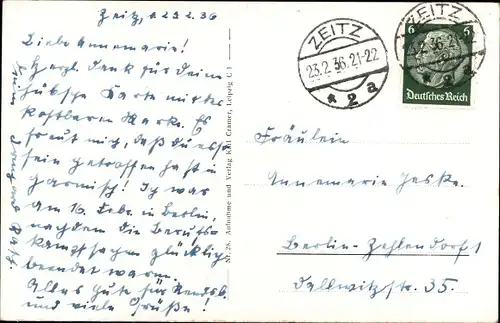 Zeitz, 23.2.36
Liebe Annemarie!
Herzl. Dank für Deine
hübsche Karte mit der
kostbaren Marke. Es
freut mich, daß du es so
fein getroffen hast in
Garmisch! Ich war
am 16. Febr. in Berlin,
nachdem die Berufs-
kampfsachen glücklich
beendet waren.
Alles Gute für
und viele Grüße!
Nr. 28. Aufnahme und Verlag Karl Cramer, Leipzig C 1
ZEITZ
23.2.36.21-22
* 2 a
ZEITZ
2.36.21
* 2 a
6 6
Deutsches Reich
Fräulein
Annemarie Jeske.
Berlin-Zehlendorf 1
Dallwitzstr. 35.